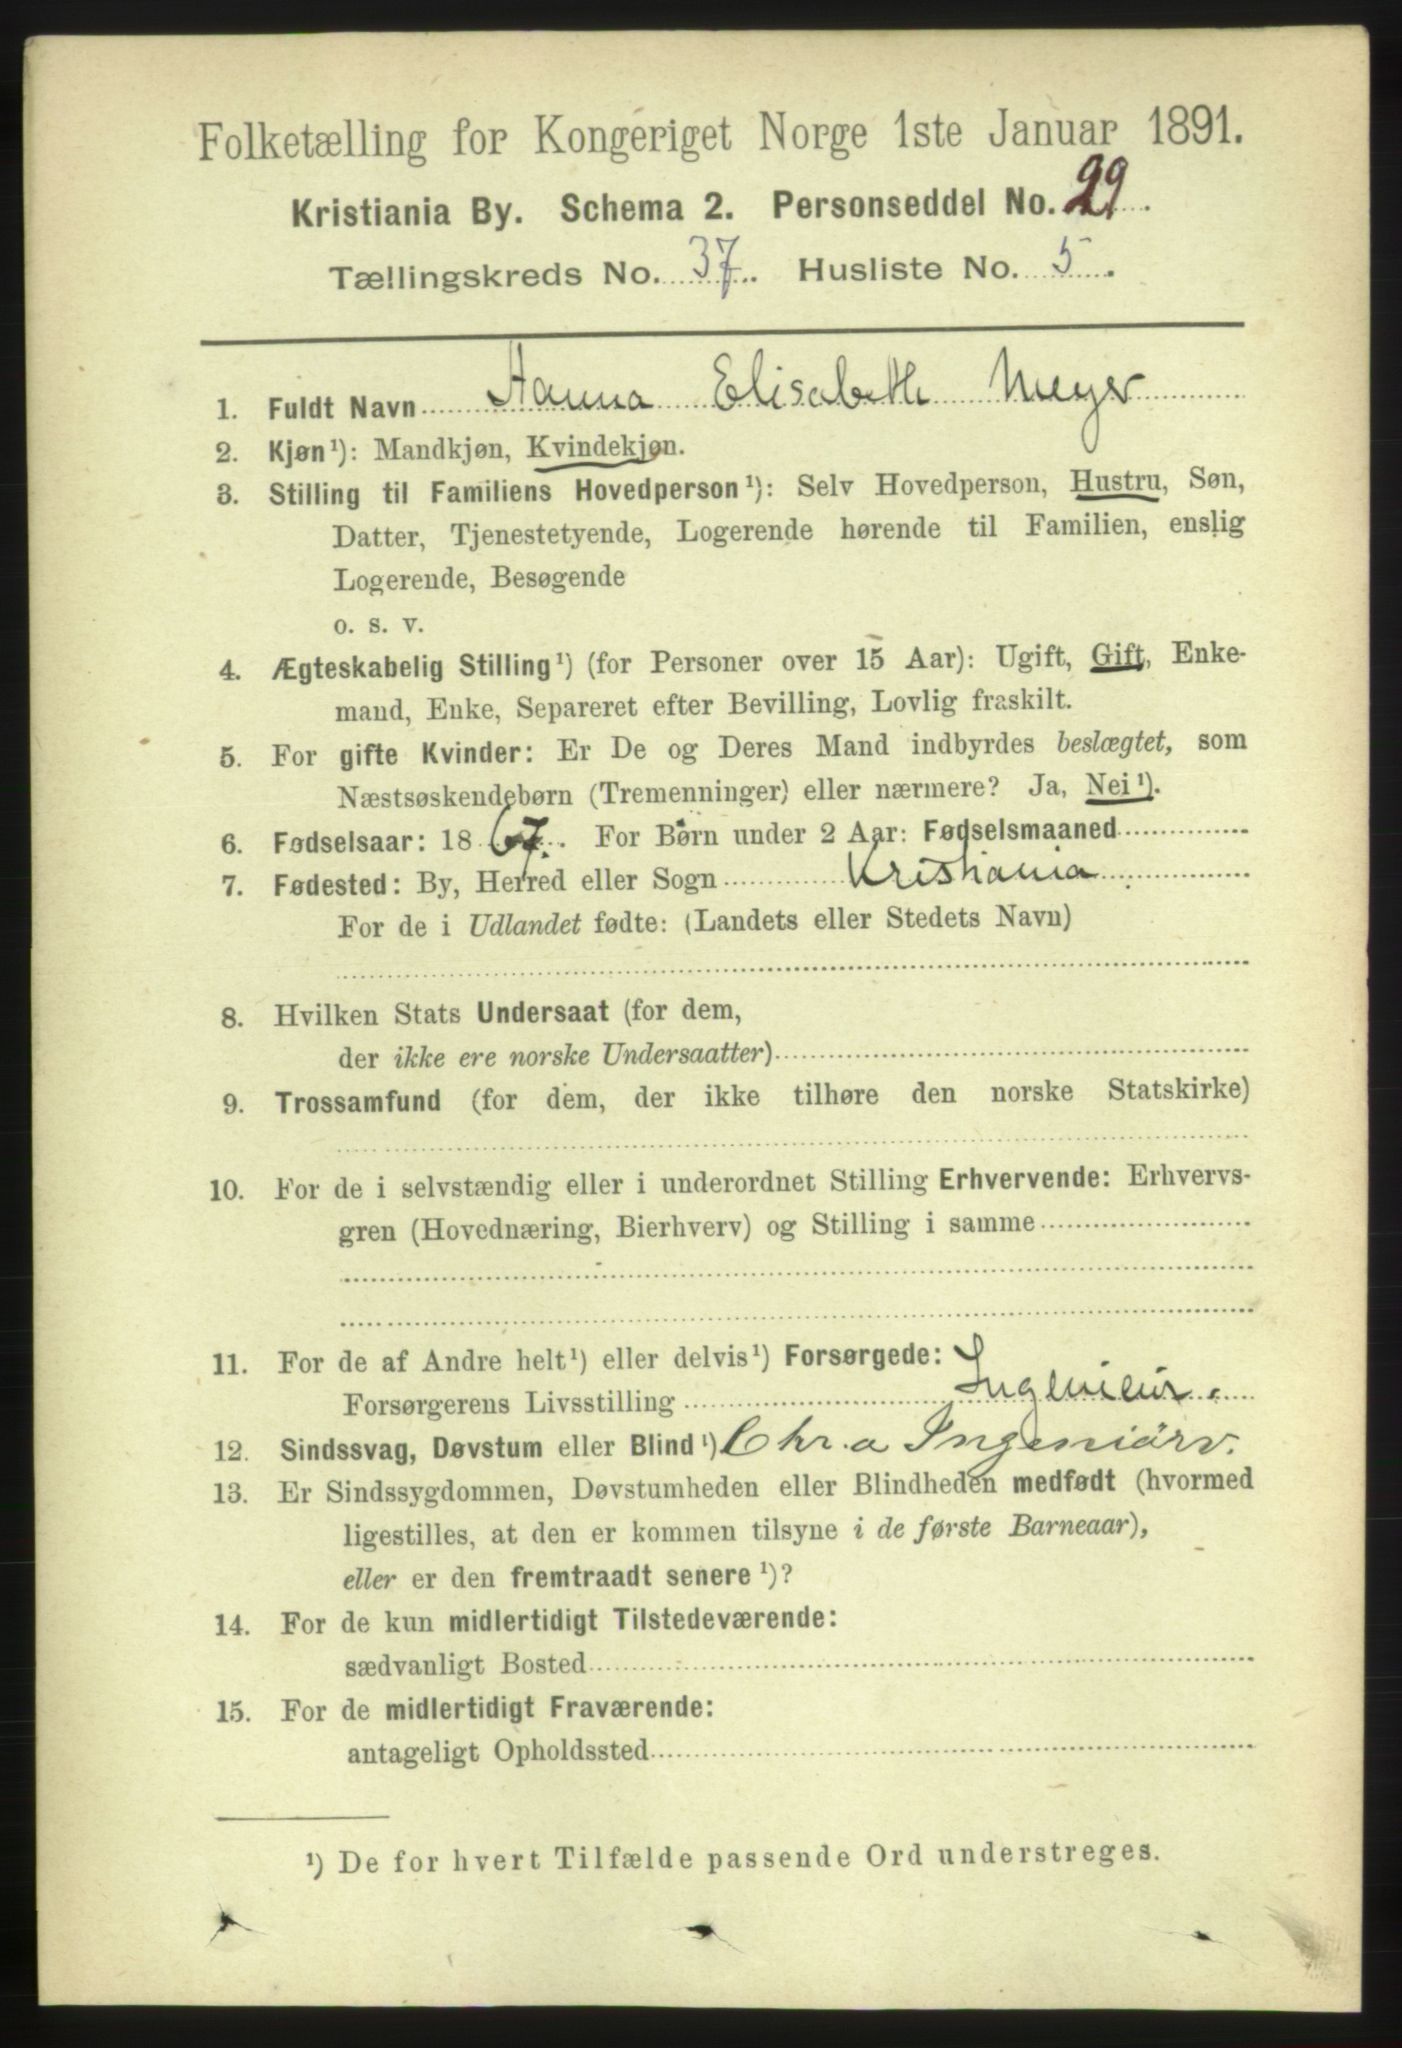 Folketælling for Kongeriget Norge 1ste Januar 1891.
Kristiania By. Schema 2. Personseddel No. 29
Tællingskreds No. 37. Husliste No. 5.
1. Fuldt Navn Hanna Elisabeth Meyer
2. Kjøn¹): Mandkjøn, Kvindekjøn.
3. Stilling til Familiens Hovedperson¹): Selv Hovedperson, Hustru, Søn,
Datter, Tjenestetyende, Logerende hørende til Familien, enslig
Logerende, Besøgende
o. s. v.
4. Ægteskabelig Stilling¹) (for Personer over 15 Aar): Ugift, Gift, Enke-
mand, Enke, Separeret efter Bevilling, Lovlig fraskilt.
5. For gifte Kvinder: Er De og Deres Mand indbyrdes beslægtet, som
Næstsøskendebørn (Tremenninger) eller nærmere? Ja, Nei¹).
6. Fødselsaar: 1867. For Børn under 2 Aar: Fødselsmaaned
7. Fødested: By, Herred eller Sogn Kristiania
For de i Udlandet fødte: (Landets eller Stedets Navn)
8. Hvilken Stats Undersaat (for dem,
der ikke ere norske Undersaatter)
9. Trossamfund (for dem, der ikke tilhøre den norske Statskirke)
10. For de i selvstændig eller i underordnet Stilling Erhvervende: Erhvervs-
gren (Hovednæring, Bierhverv) og Stilling i samme
11. For de af Andre helt¹) eller delvis¹) Forsørgede:
Forsørgerens Livsstilling Ingenieur.
12. Sindssvag, Døvstum eller Blind¹) Chr.a Ingeniörv.
13. Er Sindssygdommen, Døvstumheden eller Blindheden medfødt (hvormed
ligestilles, at den er kommen tilsyne i de første Barneaar),
eller er den fremtraadt senere¹)?
14. For de kun midlertidigt Tilstedeværende:
sædvanligt Bosted
15. For de midlertidigt Fraværende:
antageligt Opholdssted
¹) De for hvert Tilfælde passende Ord understreges.